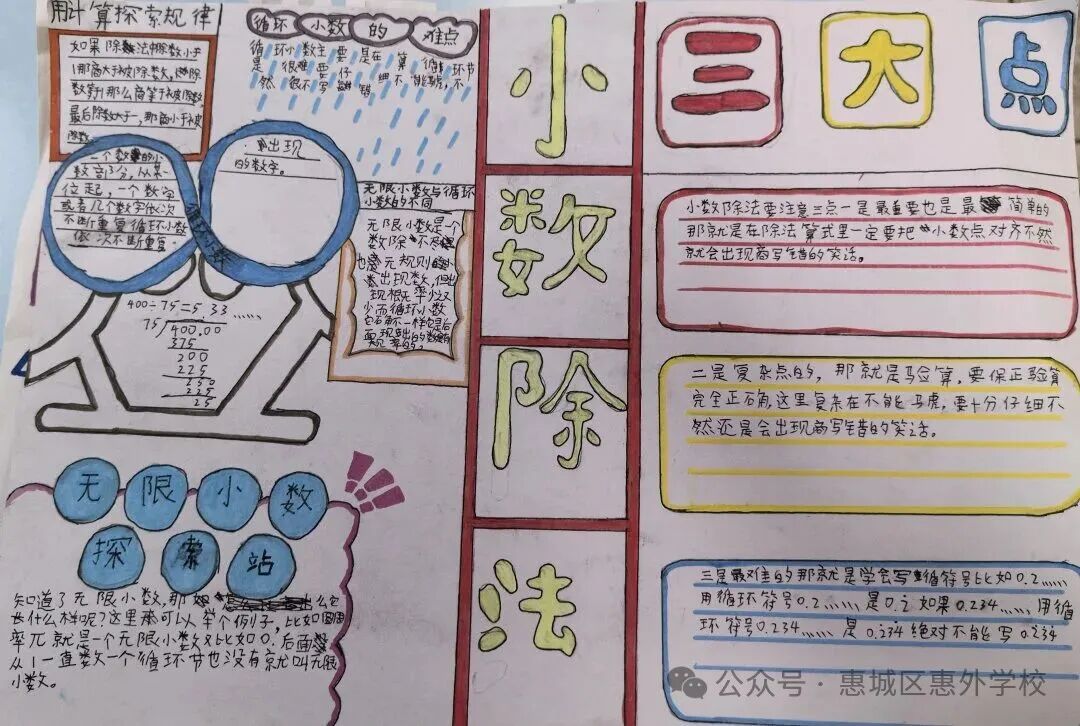 用计算探索规律
如果除数法中除数小于
1那商大于被除数,
那么商等于被除数
最后除数大于一,那商小于被
除数。
循环小数的难点
循环小数主要是在算循环节
是很难要仔细不能马虎,不
然很
一个数的小
数部分,从某一
位起,一个数字
或者几个数字依次
不断重复循环小数
依次不断重复
出现
的数字。
400÷75=5.33……
75 400.00
375
200
225
250
225
25
无限小数与循环
小数的不同
无限小数是一个
数除不尽
小数
三大点
小数除法
小数除法要注意三点一是最重要也是最简单的
那就是在除法算式里一定要把小数点对齐不然
就会出现商写错的笑话。
二是复杂点的,那就是验算,要保正验算
完全正确,这里复杂在不能马虎,要十分仔细不
然还是会出现商写错的笑话。
三是最难的那就是学会写循符号比如0.2……
用循环符号0.2……是0.2̇如果0.234……用循
环符号0.234……是0.2̇34̇绝对不能写0.234
无限小数
探索站
知道了无限小数,那么它
长什么样呢?这里可以举个例子,比如圆周
率兀就是一个无限小数又比如0.后面
从1一直数一个循环节也没有就叫无限
小数。
公众号·惠城区惠外学校